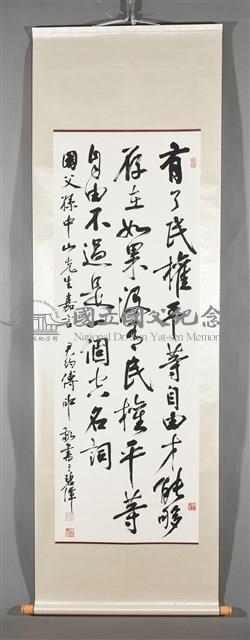 有了民權平等自由才能夠
存在如果沒有民權平等
自由不過是一個空名詞
國父孫中山先生嘉言 尹
敬書于碧潭
國立國父紀念
National Dr. Sun Yat-sen Memor